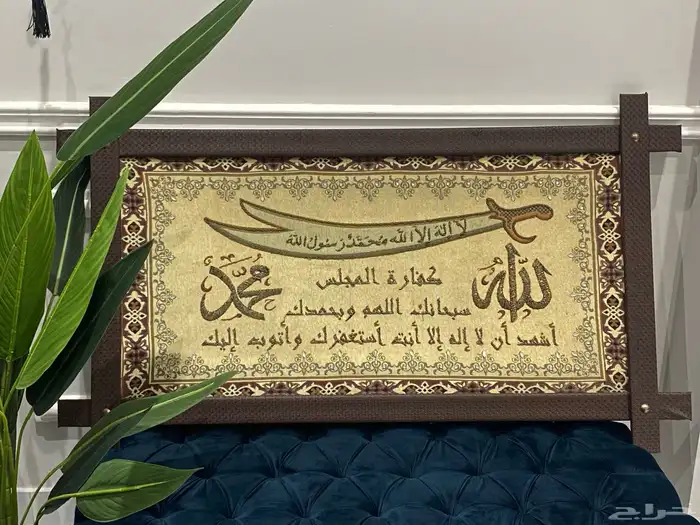 لا اله الا الله محمد رسول الله
الله
محمد
كفارة المجلس
سبحانك اللهم وبحمدك
أشهد أن لا إله إلا أنت أستغفرك وأتوب إليك
حراج